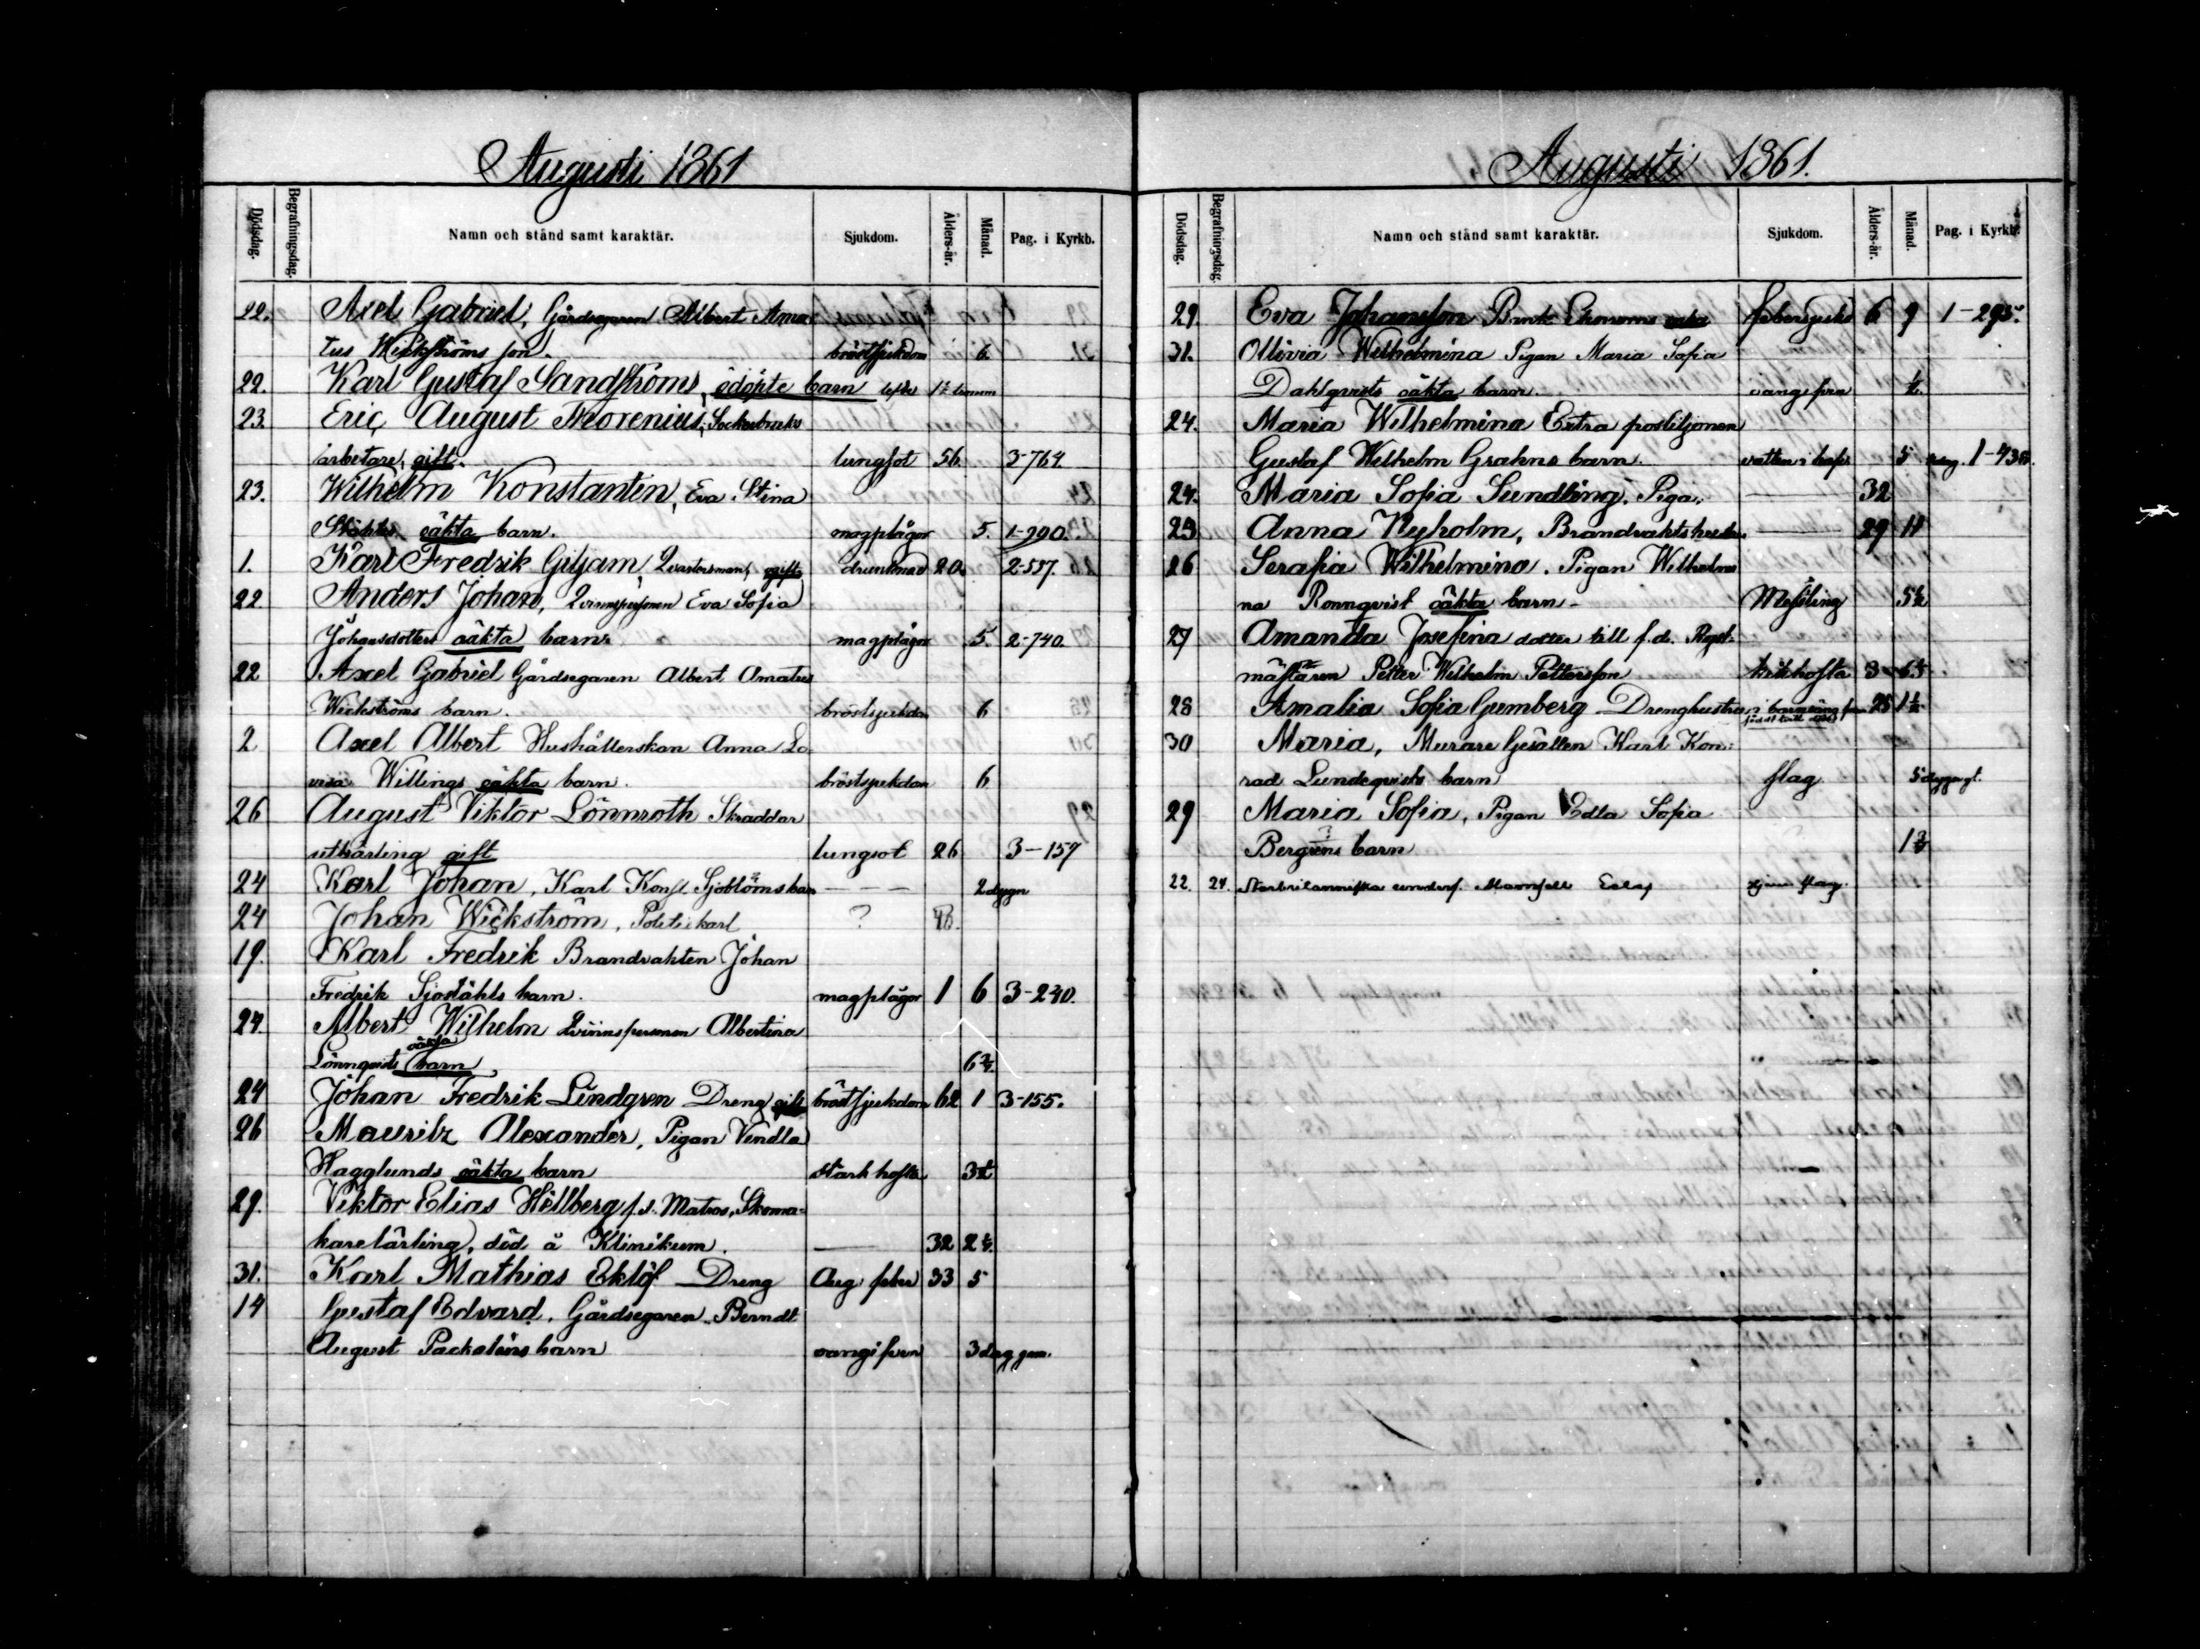 Augusti 1861
Dödsdag. Begrafningsdag. Namn och stånd samt karaktär. Sjukdom. Ålders-år. Månad. Pag. i Kyrkb.
22. Axel Gabriel, Gårdsegaren Albert Ama
tus Wickströms son. bröstsjukdom 6.
22. Karl Gustaf Sandströms, odöpte barn
23. Eric August Thorenius, Sockerbruks
arbetare, gift. lungsot 56. 3-764.
23. Wilhelm Konstantin, Eva Stina
oäkta barn. magplågor 5. 1-290.
1. Karl Fredrik Giljam, Qvartersman, ogift drunknad 20. 2-557.
22 Anders Johan, Qvinnspersonen Eva Sofia
Johansdotters oäkta barn. magplågor 5. 2-740.
22 Axel Gabriel Gårdsegaren Albert Amatus
Wickströms barn. bröstsjukdom 6
2 Axel Albert Hushållerskan Anna Lo-
visa Willings oäkta barn. bröstsjukdom 6
26 August Viktor Lönnroth Skräddar
utlärling gift lungsot 26 3-157
24 Karl Johan, Karl Konst. Sjöblöms barn — — — 2 dygn
24 Johan Wickström, Politiekarl ? 48.
19. Karl Fredrik Brandvakten Johan
Fredrik Sjöståhls barn. magplågor 1 6 3-240.
24. Albert Wilhelm Qvinnspersonen Albertina
Lönnqvists oäkta barn 6¾
24 Johan Fredrik Lindgren Dreng gift bröstsjukdom 62 1 3-155.
26 Mauritz Alexander, Pigan Vendla
Hagglunds oäkta barn stark hosta 3½
29. Viktor Elias Hellberg f.d. Matros, Skoma-
karelärling, död å Klinikum. — 32 2½
31. Karl Mathias Eklöf Dreng 33 5
14 Gustaf Edvard, Gårdsegaren Berndt
August Packaléns barn oangifven 3 dag gam.
Augusti 1861.
Dödsdag. Begrafningsdag. Namn och stånd samt karaktär. Sjukdom. Ålders-år. Månad. Pag. i Kyrkb.
29. Eva Johansson 6 9 1-295.
31. Ollivia Wilhelmina Pigan Maria Sofia
Dahlqvists oäkta barn. ½.
24. Maria Wilhelmina Extra postiljonen
Gustaf Wilhelm Grahns barn. 5
24. Maria Sofia Sundling, Piga, — 32
23 Anna Nyholm, Brandvakts — 29 11
26 Serafia Wilhelmina. Pigan Wilhelmi
na Ronnqvist oäkta barn Messling 5½
27 Amanda Josefina dotter till f.d. Repsl.
mästaren Petter Wilhelm Pettersson kikhosta 3 6½
28 Amalia Sofia Gumberg Drenghustru 28 1½
30 Maria, Murare Gesällen Karl Kon:
rad Lundeqvists barn slag 5
29 Maria Sofia, Pigan Edla Sofia
Bergrens barn 1¾
22. 24. Storbritanniska unders.